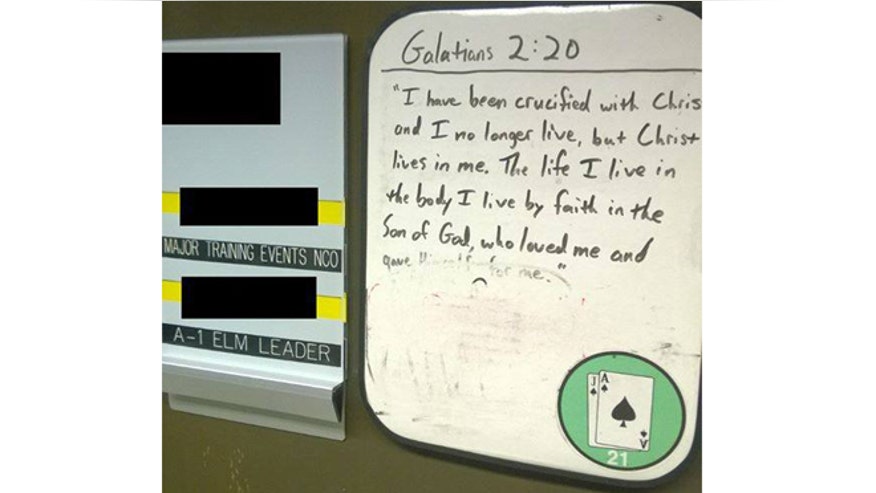 MAJOR TRAINING EVENTS NCO
A-1 ELM LEADER
Galatians 2:20
"I have been crucified with Chris
and I no longer live, but Christ
lives in me. The life I live in
the body I live by faith in the
Son of God, who loved me and
gave Himself for me."
J
A
A
21